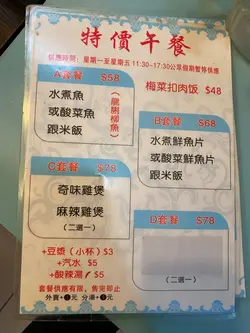 特價午餐
供應時間：星期一至星期五 11:30-17:30 公眾假期暫停供應
A套餐 $58
水煮魚
或酸菜魚
跟米飯
梅菜扣肉饭 $48
B套餐 $68
水煮鮮魚片
或酸菜鮮魚片
跟米飯
C套餐 $78
奇味雞煲
麻辣雞煲
(二選一)
D套餐 $78
(二選一)
+豆漿（小杯）$3
+汽水 $5
+酸辣湯 $5
套餐供應有限，售完即止